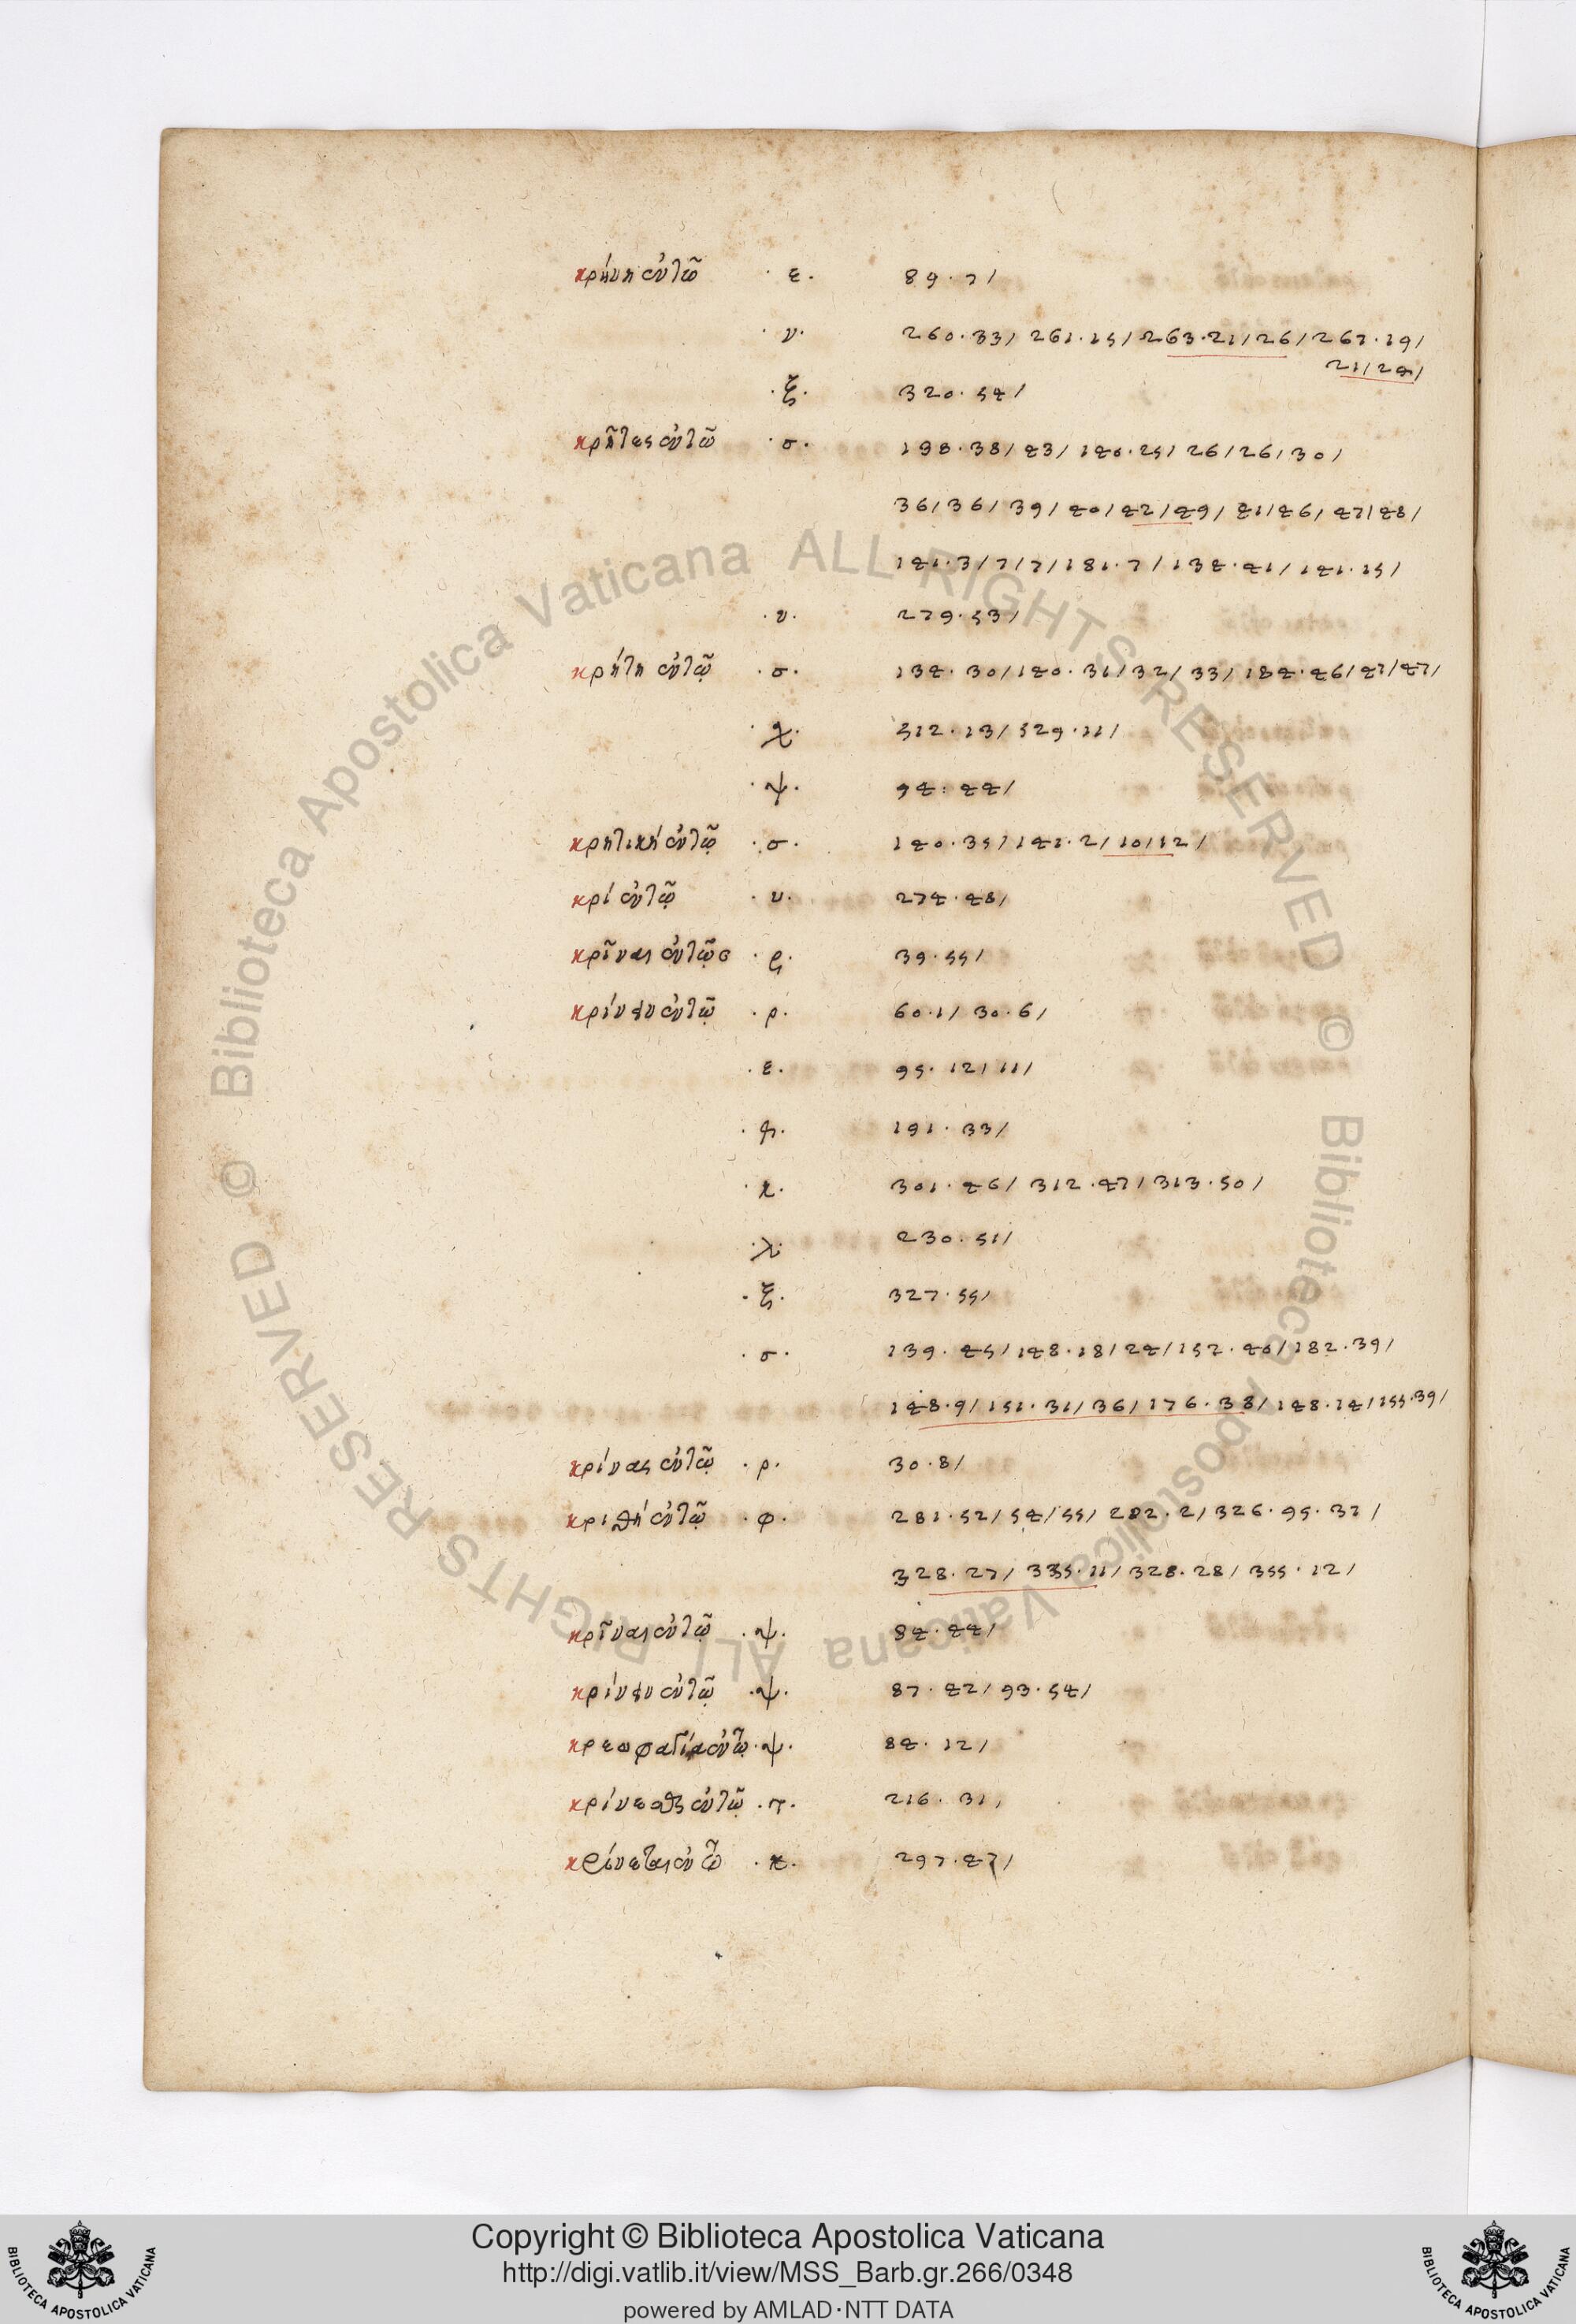 κρήνη ἐν τῶ · ε · 89 · 7 /
· ν · 260 · 33 / 261 · 15 / 263 · 21 / 26 / 267 · 19 /
21 / 29 /
· ξ · 320 · 54 /
κρῆτες ἐν τῶ · σ · 198 · 38 / 43 / 140 · 25 / 26 / 26 / 30 /
36 / 36 / 39 / 40 / 42 / 49 / 41 / 46 / 47 / 48 /
141 · 3 / 7 / 7 / 181 · 7 / 134 · 41 / 141 · 15 /
· υ · 279 · 53 /
κρήτη ἐν τῶ · σ · 134 · 30 / 140 · 31 / 32 / 33 / 184 · 46 / 47 / 47 /
512 · 13 / 529 · 11 /
· ψ · 94 · 44 /
κρητικὴ ἐν τῶ · σ · 140 · 35 / 141 · 2 / 10 / 12 /
κρὶ ἐν τῶ · υ · 274 · 48 /
κρῖναι ἐν τῶ · ξ · 39 · 55 /
κρίνειν ἐν τῶ · ρ · 60 · 1 / 30 · 6 /
· ε · 95 · 12 / 11 /
191 · 33 /
· κ · 301 · 46 / 312 · 47 / 313 · 50 /
· λ · 230 · 51 /
· ξ · 327 · 55 /
· σ · 139 · 45 / 148 · 18 / 24 / 152 · 40 / 182 · 39 /
148 · 9 / 151 · 31 / 36 / 176 · 38 / 148 · 14 / 155 · 39 /
κρίνας ἐν τῶ · ρ · 30 · 8 /
κριθὴ ἐν τῶ · φ · 281 · 52 / 54 / 55 / 282 · 2 / 326 · 95 · 37 /
328 · 27 / 335 · 11 / 328 · 28 / 355 · 12 /
κρῖναι ἐν τῶ · ψ · 84 · 44 /
κρίνειν ἐν τῶ · ψ · 87 · 42 / 93 · 54 /
κρεωφαγία ἐν τῶ · ψ · 84 · 12 /
κρίνεσθαι ἐν τῶ · τ · 216 · 31 /
κρίνεται ἐν τῶ · κ · 297 · 47 /
© Biblioteca Apostolica Vaticana ALL RIGHTS RESERVED © Biblioteca Apostolica Vaticana ALL RIGHTS RESERVED
Copyright © Biblioteca Apostolica Vaticana
http://digi.vatlib.it/view/MSS_Barb.gr.266/0348
powered by AMLAD·NTT DATA
BIBLIOTECA APOSTOLICA VATICANA
BIBLIOTECA APOSTOLICA VATICANA